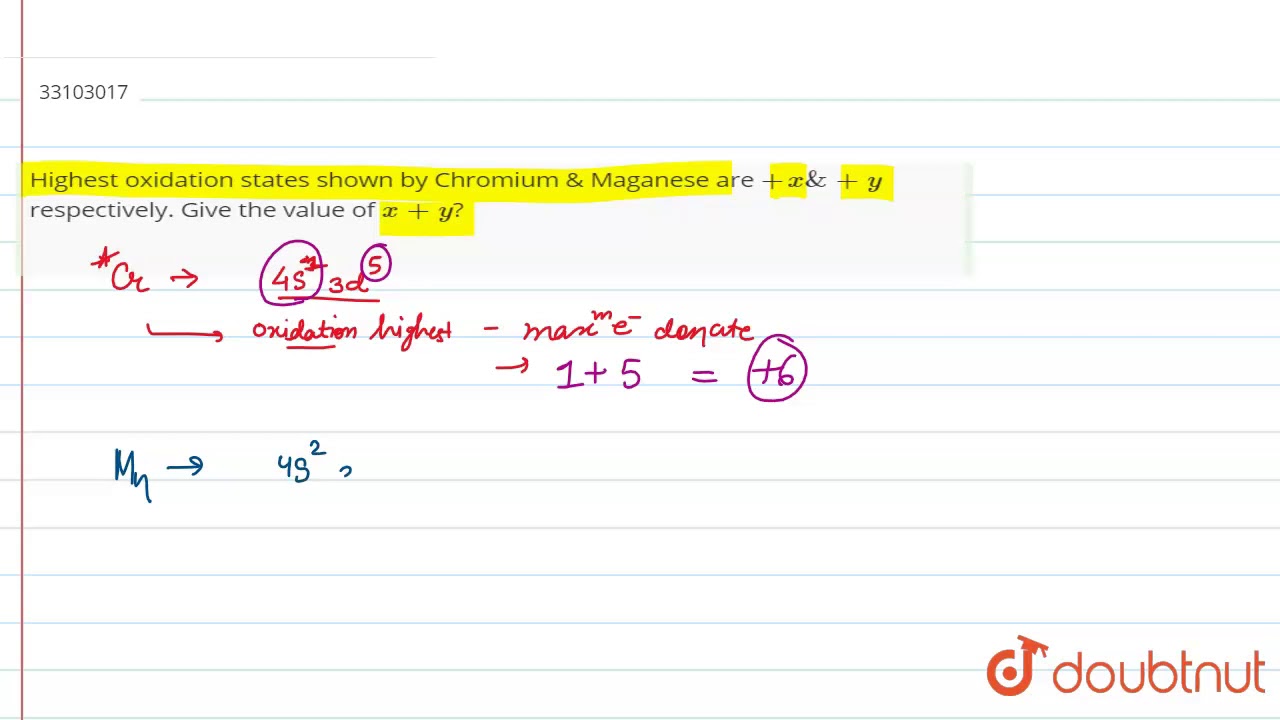 33103017
Highest oxidation states shown by Chromium & Maganese are +x& + y
respectively. Give the value of x + y?
*Cr → 4S¹ 3d⁵
oxidation highest - maxᵐ e⁻ donate
→ 1+ 5 = +6
Mn → 4S²
doubtnut